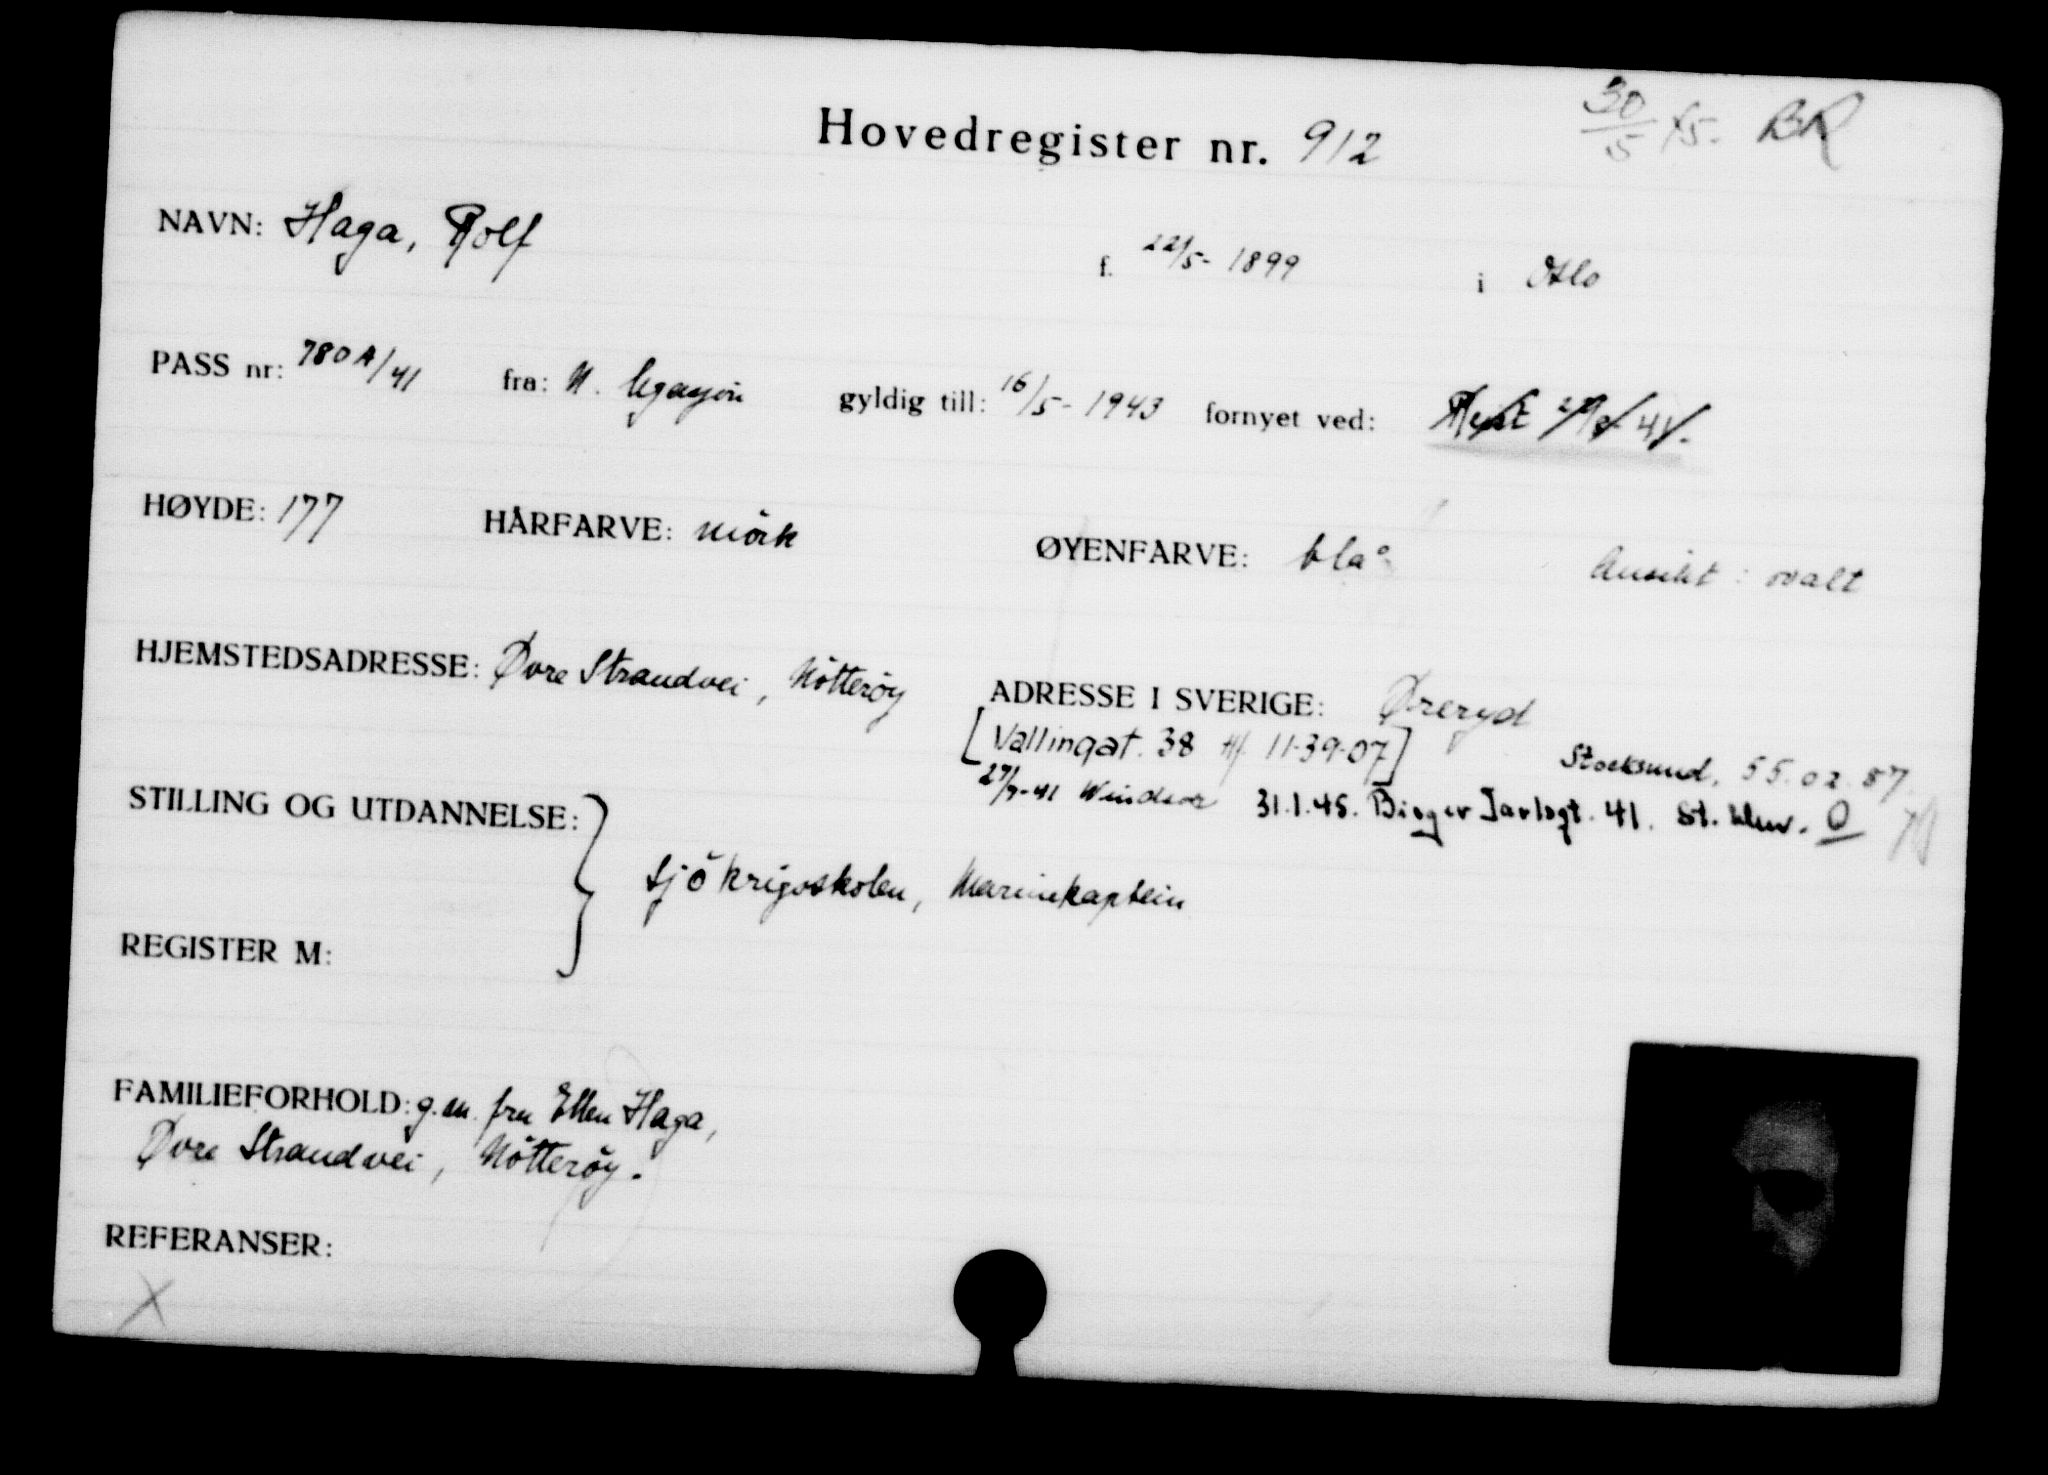 30/5 45. BR
Hovedregister nr. 912
NAVN: Haga, Rolf f. 22/5- 1899 i Oslo
PASS nr: 780 A/41 fra: N. legasjon gyldig till: 16/5- 1943 fornyet ved:
HØYDE: 177 HÅRFARVE: mörk ØYENFARVE: blå Ansikt : ovalt
HJEMSTEDSADRESSE: Øvre Strandvei, Nötteröy ADRESSE I SVERIGE: Öreryd
[Wallingat. 38 tlf. 11-39-07] Stocksund, 55.02.87.
27/7-41 Windsor 31.1.45. Birger Jarlsgt. 41. St. hlm. O
STILLING OG UTDANNELSE:
Sjökrigsskolen, Marinekaptein
REGISTER M:
FAMILIEFORHOLD: g.m. fru Ellen Haga,
Øvre Strandvei, Nötteröy.
REFERANSER:
X